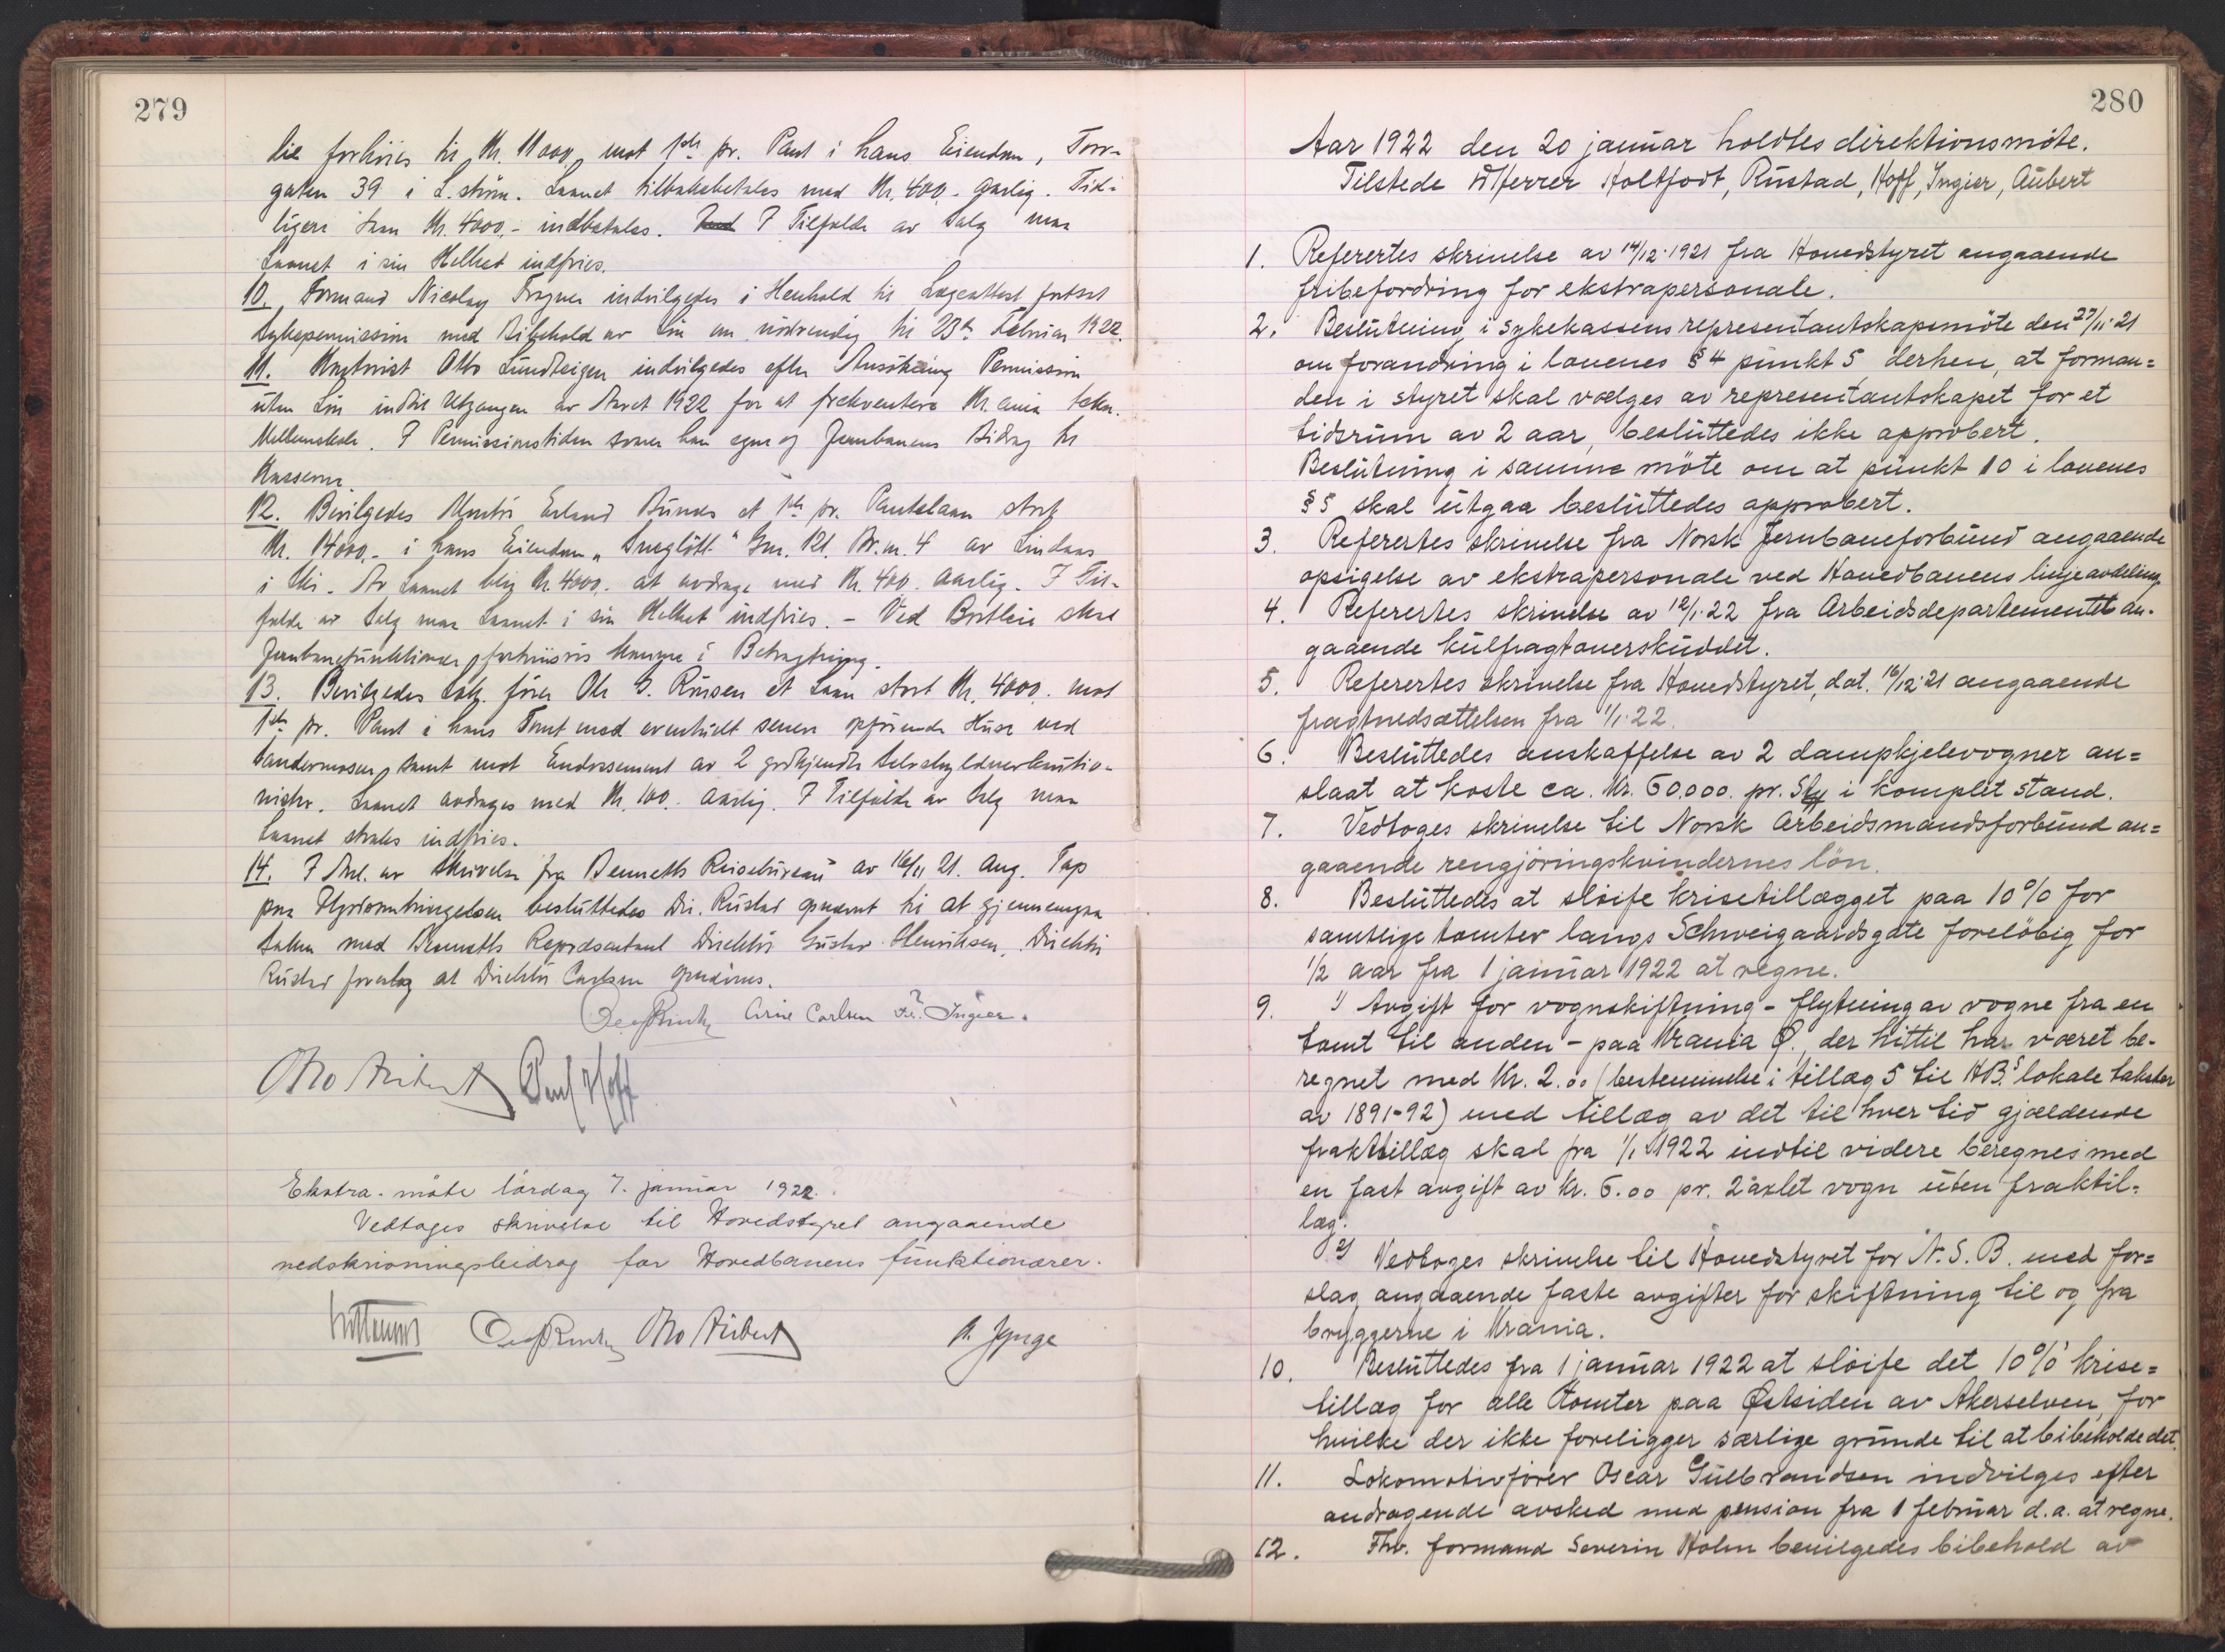 279
lie forhöies til Kr. 11000,- mot 1ste pr. Pant i hans Eiendom, Torv-
gaten 39 i L.ström. Laanet tilbakebetales med Kr. 400.- aarlig. Tid-
ligere kan Kr. 4000.- indbetales. I Tilfælde av Salg maa
Laanet i sin Helhet indfries.
10. Formand Nicolay Tragner indvilgedes i Henhold til Lægeattest fortsat
Sykepermission med Bibehold av Lön om nödvendig til 23de Februar 1922.
11. Kontorist Otto Lundteigen indvilgedes efter Ansökning Permission
uten Lön indtil Utgangen av Aaret 1922 for at frekventere Kr.ania tekn.
Mellemskole. I Permissionstiden svarer han egne og Jernbanens Bidrag til
Kasserne.
12. Bevilgedes Montör Erland et 1ste pr. Pantelaan stort
Kr. 14000.- i hans Eiendom " Gnr. 121. Br.nr. 4 av
i Ski. Av Laanet blir Kr. 4000.- at avdrage med Kr. 400 aarlig. I Til-
fælde av Salg maa Laanet i sin Helhet indfries. - Ved Bortleie skal
Jernbanefunktionær fortrinsvis komme i Betragtning.
13. Bevilgedes Lok. förer Ole G. et Laan stort Kr. 4000. mot
1ste pr. Pant i hans Tomt med eventuelt senere opförende Huse ved
Sandermosen, samt mot Endossement av 2 godkjendte Selvskyldnerkautio-
nister. Laanet avdrages med Kr. 100.- aarlig. I Tilfælde av Salg maa
Laanet straks indfries.
14. I Anl. av Skrivelse fra Bennetts Reisebureau av 16/11 21. ang. Tap
paa besluttedes Dir. Rustad opnævnt til at gjennemgaa
Saken med Bennetts Repræsentant Direktör Gustav Henriksen. Direktör
Rustad foreslog at Direktör Carlsen opnævnes.
Arne Carlsen Fr. Ingier.
Otto Aubert Hoff
Ekstra-möte lördag 7. januar 1922.
Vedtoges skrivelse til Hovedstyret angaaende
nedskrivningsbidrag for Hovedbanens funktionærer.
Otto Aubert
280
Aar 1922 den 20 januar holdtes direktionsmöte.
Tilstede Herrer Holtfodt, Rustad, Hoff, Ingier, Aubert
1. Refereres skrivelse av 14/12.1921 fra Hovedstyret angaaende
fribefordring for ekstrapersonale.
2. Beslutning i sykekassens representantskapsmöte den 27/11.21
om forandring i lovenes § 4 punkt 5 derhen, at forman=
den i styret skal vælges av representantskapet for et
tidsrum av 2 aar, besluttedes ikke approbert.
Beslutning i samme möte om at punkt 10 i lovenes
§ 5 skal utgaa besluttedes approbert.
3. Refereres skrivelse fra Norsk Jernbaneforbund angaaende
opsigelse av ekstrapersonale ved Hovedbanens linjeavdeling.
4. Refereres skrivelse av 12/1.22 fra Arbeidsdepartementet an-
gaaende kulfragtoverskuddet.
5. Refereres skrivelse fra Hovedstyret, dat. 16/12.21 angaaende
fragtnedsættelsen fra 1/1.22.
6. Besluttedes anskaffelse av 2 dampkjelevogner an=
slaat at koste ca. Kr. 60.000. pr. Stk i komplet stand.
7. Vedtoges skrivelse til Norsk Arbeidsmandsforbund an=
gaaende rengjöringskvindernes lön.
8. Besluttedes at slöife krisetillægget paa 10% for
samtlige tomter langs Schweigaardsgate forelöbig for
1/2 aar fra 1 januar 1922 at regne.
9. 1) Avgift for vognskiftning - flytning av vogne fra en
tomt til anden - paa Krania Ø., der hittil har været be-
regnet med Kr. 2.00 (bestemmelse i tillæg 5 til HB.s lokale takster
av 1891-92) med tillæg av det til hver tid gjældende
frakttillæg skal fra 1/1 1922 indtil videre beregnes med
en fast avgift av kr. 6.00 pr. 2 axlet vogn uten fraktil-
læg.
2) Vedtoges skrivelse til Hovedstyret for N.S.B. med for=
slag angaaende faste avgifter for skiftning til og fra
bryggerne i Krania.
10. Besluttedes fra 1 januar 1922 at slöife det 10% krise=
tillæg for alle tomter paa Østsiden av Akerselven, for
hvilke der ikke foreligger særlige grunde til at bibeholde det.
11. Lokomotivförer Oscar Gulbrandsen indvilges efter
andragende avsked med pension fra 1 februar d.a. at regne.
12. Fhv. formand Severin Holm bevilgedes bibehold av